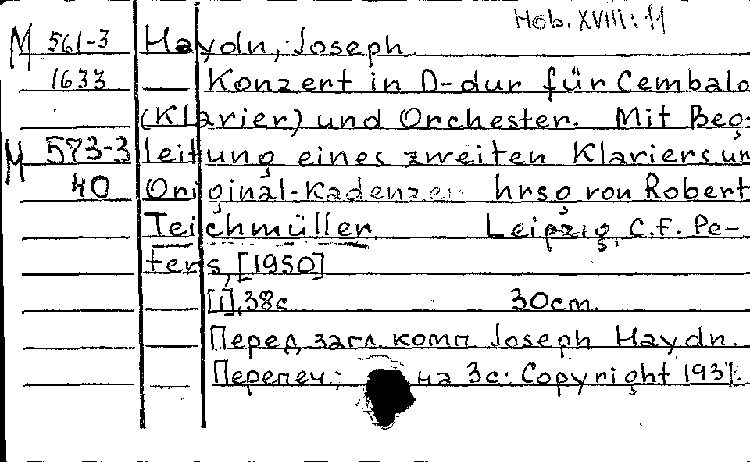 Hob. XVIII:11
M 561-3 Haydn, Joseph.
1633 — Konzert in D-dur für Cembalo
(Klavier) und Orchester. Mit Beg-
M 573-3 leitung eines zweiten Klaviers un
40 Original-Kadenzen hrsg von Robert
Teichmüller Leipzig, C.F. Pe-
ters, [1950]
[1], 38 с 30 cm.
Перед загл. комп Joseph Haydn.
Перепеч.: на 3с. Copyright 193